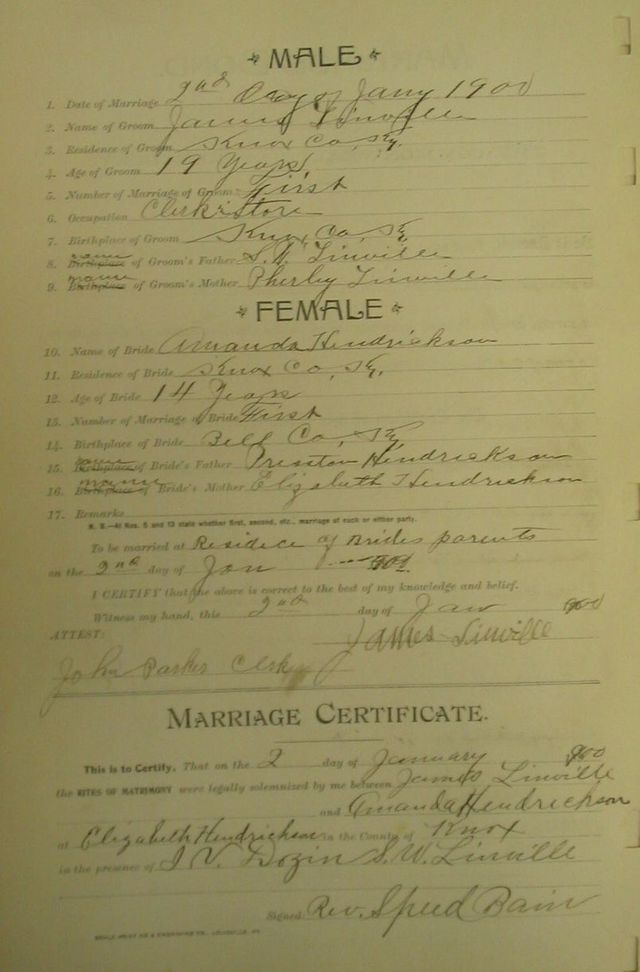 MALE
1. Date of Marriage 2nd Day of Jany 1900
2. Name of Groom James Linville
3. Residence of Groom Knox Co, Ky.
4. Age of Groom 19 Years
5. Number of Marriage of Groom First
6. Occupation Clerk Store
7. Birthplace of Groom Knox Co, Ky
name
8. Birthplace of Groom's Father S. W. Linville
name
9. Birthplace of Groom's Mother Pherby Linville
FEMALE
10. Name of Bride Amanda Hendrickson
11. Residence of Bride Knox Co, Ky.
12. Age of Bride 14 Years
13. Number of Marriage of Bride First
14. Birthplace of Bride Bell Co, Ky
name
15. Birthplace of Bride's Father Preston Hendrickson
name
16. Birthplace of Bride's Mother Elizabeth Hendrickson
17. Remarks
N. B.—At Nos. 5 and 13 state whether first, second, etc., marriage of each or either party.
To be married at Residece of Brides parents
on the 2nd day of Jan
I CERTIFY that the above is correct to the best of my knowledge and belief.
Witness my hand, this 2nd day of Jan 1900
ATTEST: James Linville
John Parker Clerk
MARRIAGE CERTIFICATE.
This is to Certify, That on the 2 day of January 1900
the RITES OF MATRIMONY were legally solemnized by me between James Linville
and Amanda Hendrickson
at Elizabeth Hendrickson in the County of Knox
in the presence of J. V. Dozin S. W. Linville
Signed Rev. Speed Bain